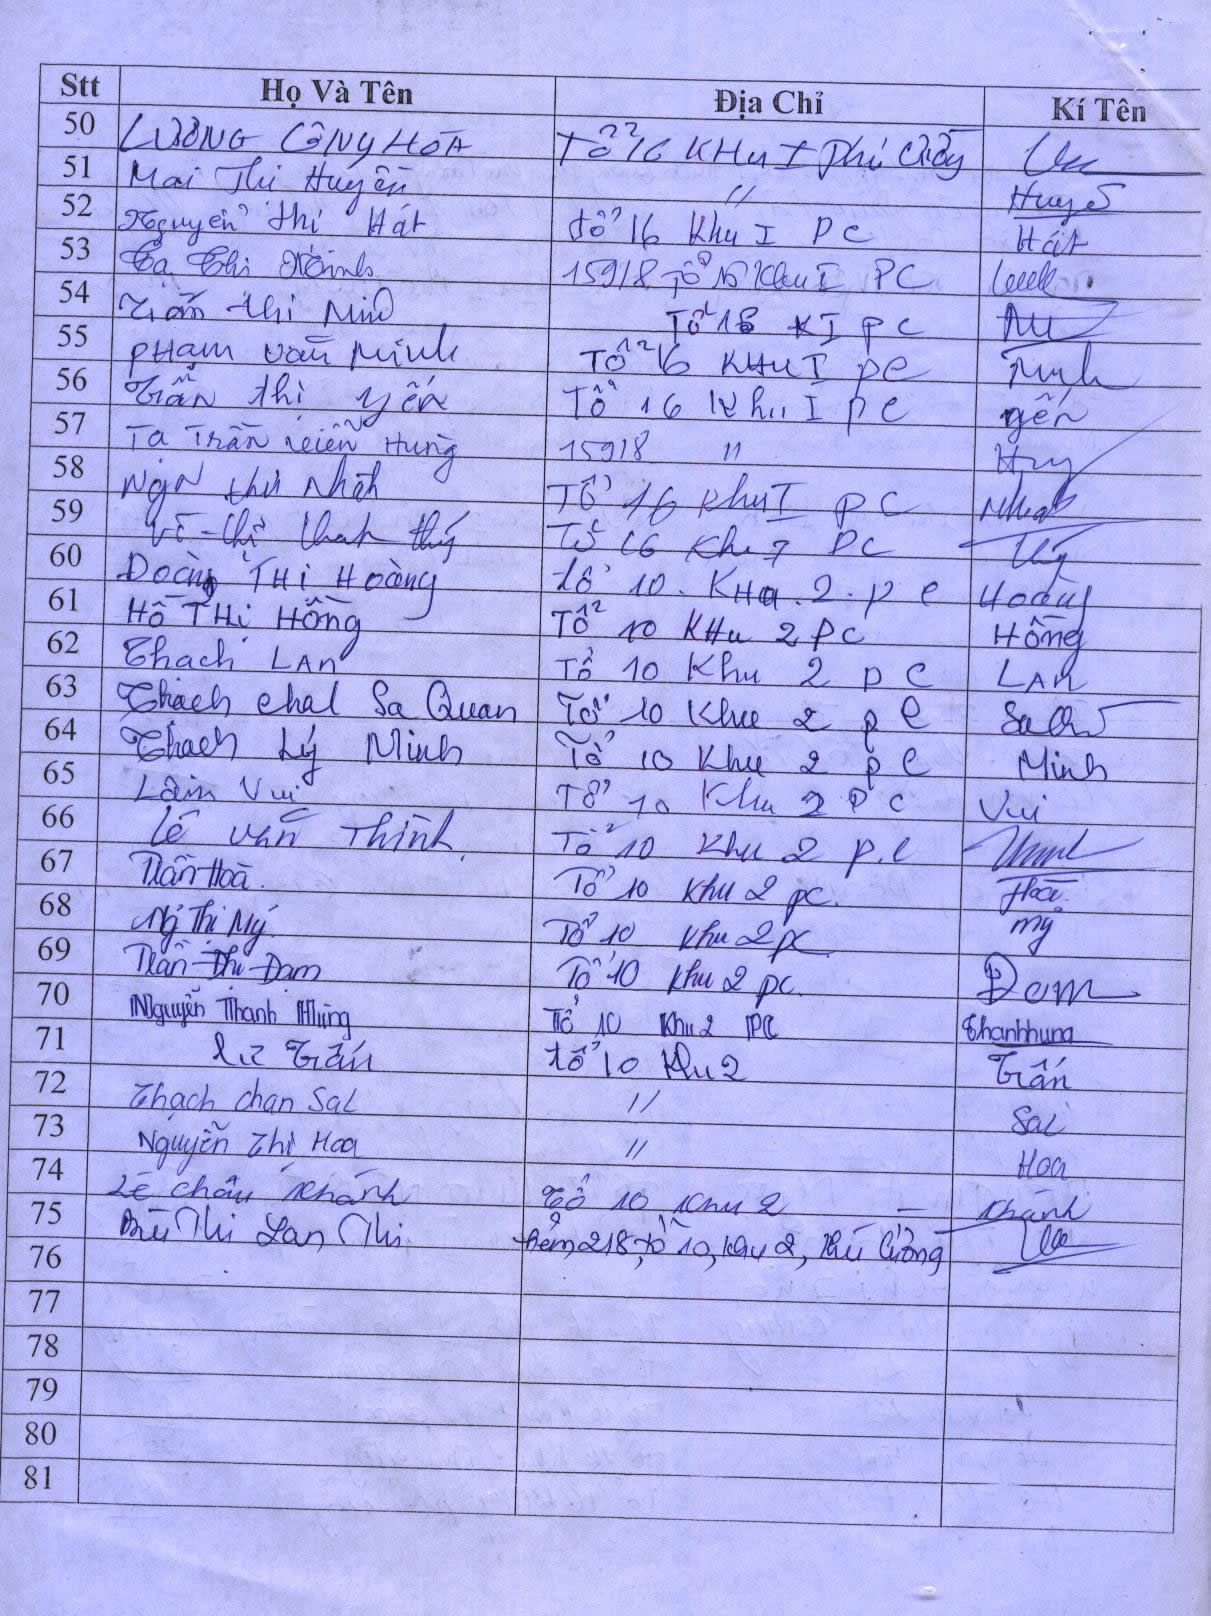 Stt Họ Và Tên Địa Chỉ Kí Tên
50 LƯƠNG CÔNG HÒA Tổ 16 KHU I Phú Cường
51 Mai Thị Huyền " Huyền
52 Nguyễn thị Hát tổ 16 Khu I PC Hát
53 Tạ Thị 159/8 Tổ 16 Khu I PC
54 Trần thị Tổ 16 KI PC
55 PHạm văn Minh Tổ 16 KHU I PC Minh
56 Trần thị yến Tổ 16 Khu I PC yến
57 Tạ Trần Hưng 159/8 "
58 thị Tổ 16 Khu I PC
59 Võ - thị thanh thúy Tổ 16 Khu I PC
60 Đoàn THị Hoàng tổ 10. KHu. 2. PC Hoàng
61 Hồ THị Hồng Tổ 10 KHu 2 PC Hồng
62 Thạch LAN Tổ 10 Khu 2 PC LAN
63 Thạch chal Sa Quan Tổ 10 Khu 2 PC
64 Thạch Lý Minh Tổ 10 Khu 2 PC Minh
65 Lâm Vui Tổ 10 Khu 2 PC Vui
66 Lê Văn Thình Tổ 10 Khu 2 P.C
67 Trần Hoà. Tổ 10 Khu 2 PC. Hoà
68 Thị Mỹ Tổ 10 Khu 2 PC mỹ
69 Trần Thị Đạm Tổ 10 Khu 2 PC. Đạm
70 Nguyễn Thanh Hùng Tổ 10 Khu 2 PC Thanhhung
71 Lư Trấn tổ 10 Khu 2 Trấn
72 Thạch chan Sal " Sal
73 Nguyễn Thị Hoa " Hoa
74 Lê Châu Khánh Tổ 10 Khu 2 Khánh
75 Bùi Thị Lan Thi hẻm 218, tổ 10, khu 2, Phú Cường
76
77
78
79
80
81